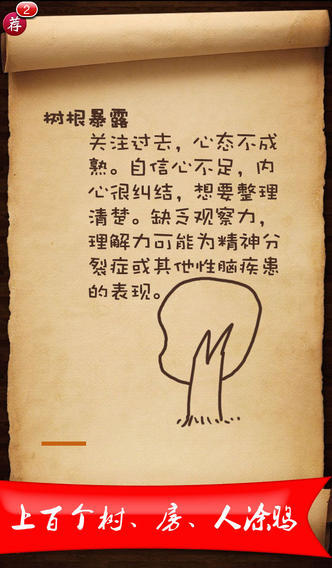 荐
2
树根暴露
关注过去，心态不成
熟。自信心不足，内
心很纠结，想要整理
清楚。缺乏观察力，
理解力可能为精神分
裂症或其他性脑疾患
的表现。
上百个树、房、人涂鸦